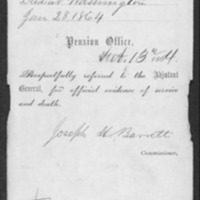 Washington
Jan 28. 1864
Pension Office,
Respectfully referred to the Adjutant
General, for official evidence of service
and death.
Joseph H Barrett
Commissioner.